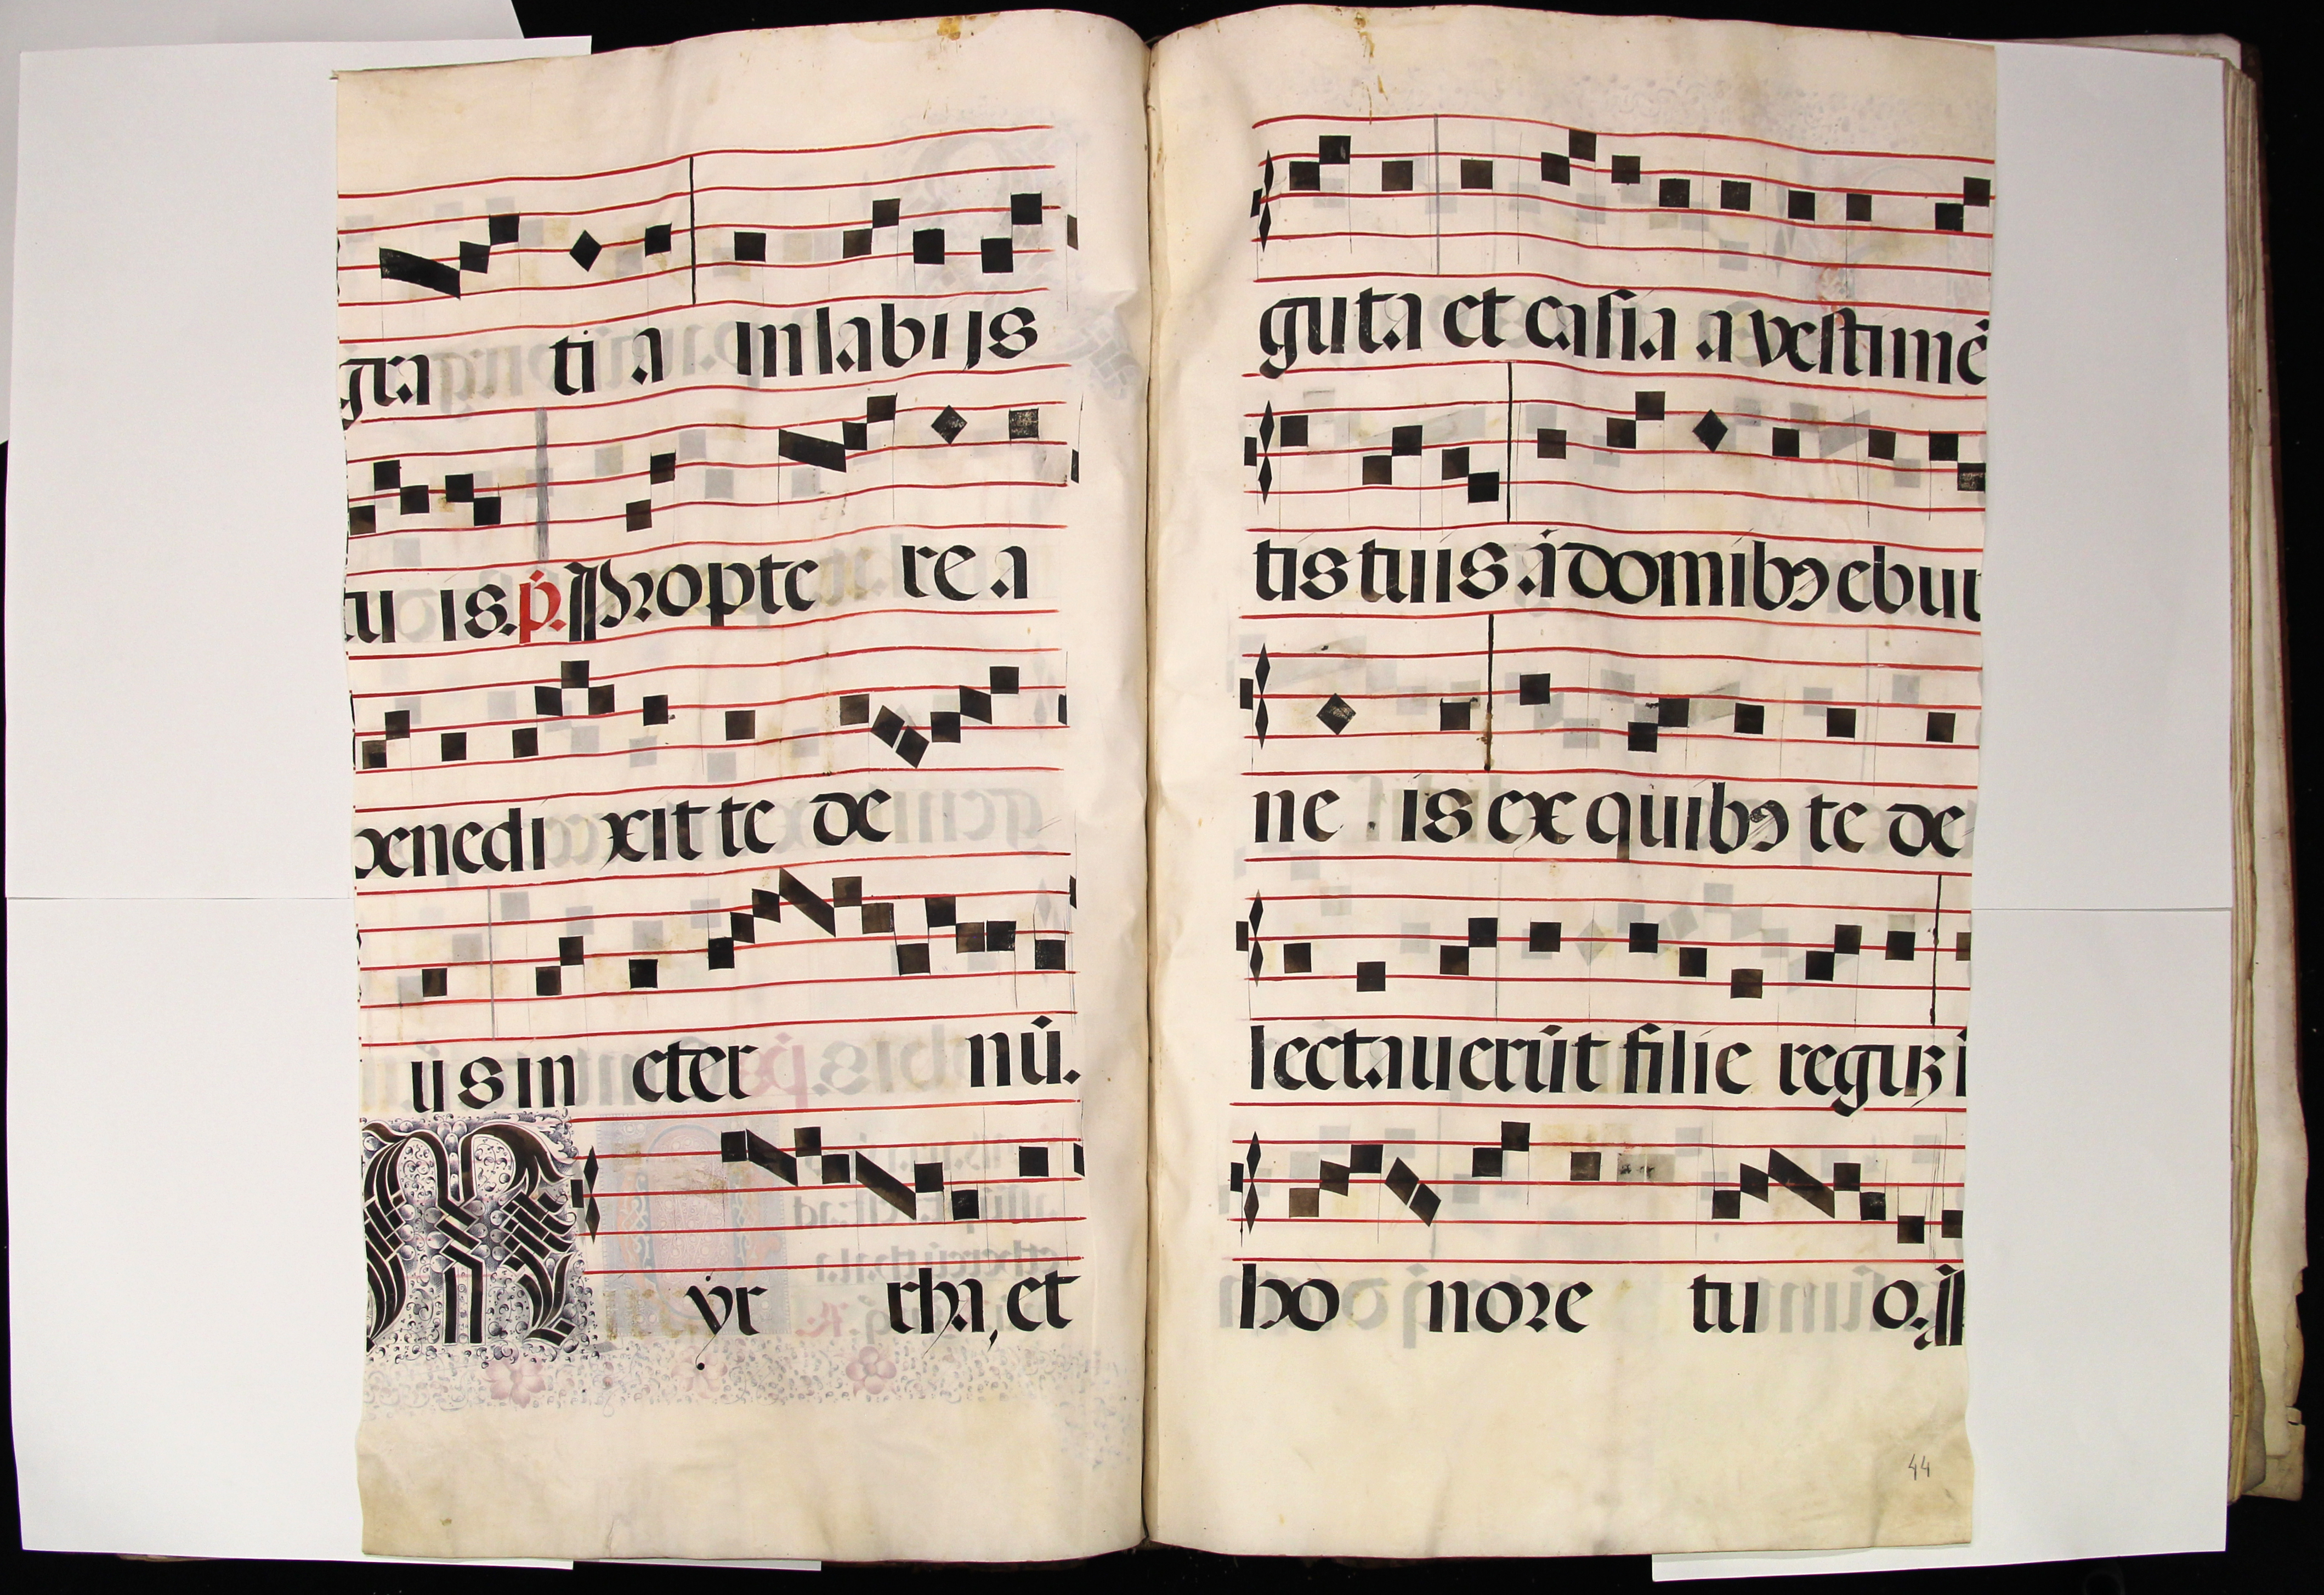 gra ti a in labijs
tu is. p̄. Propte re a
benedi xit te de
us in eter nū.
Myr rha, et
guta et casia a vestimē
tis tuis á domibꝯ ebur
ne is ex quibꝯ te de
lectauerūt filie regūꝫ i
ho nore tu o.
44